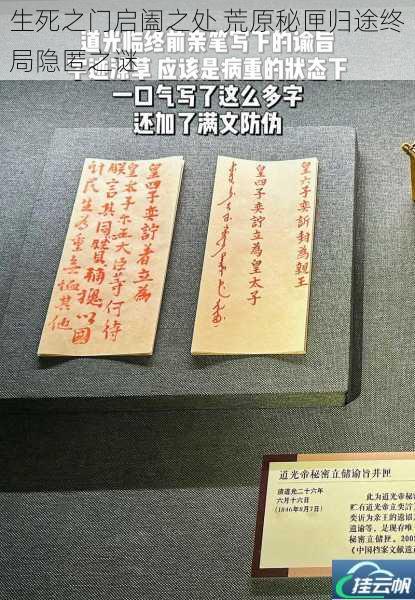 生死之门启阖之处 荒原秘匣归途终
局隐匿之谜
道光临终前亲笔写下的谕旨
应该是病重的狀态下
一口气写了这么多字
还加了满文防伪
皇六子奕訢封為親王
皇四子奕詝立為皇太子
皇四子奕詝着立為
皇太子尔王大臣等何待
朕言其同心贊輔總以國
計民生為重無恤其他
道光帝秘密立儲諭旨并匣
清道光二十六年
六月十六日
(1846年8月7日)
此为道光
贮有道光立奕詝
奕訢为亲王的遗诏
遗谕等，是现存唯
秘密立储匣。200
《中国档案文献遗
挂云帆